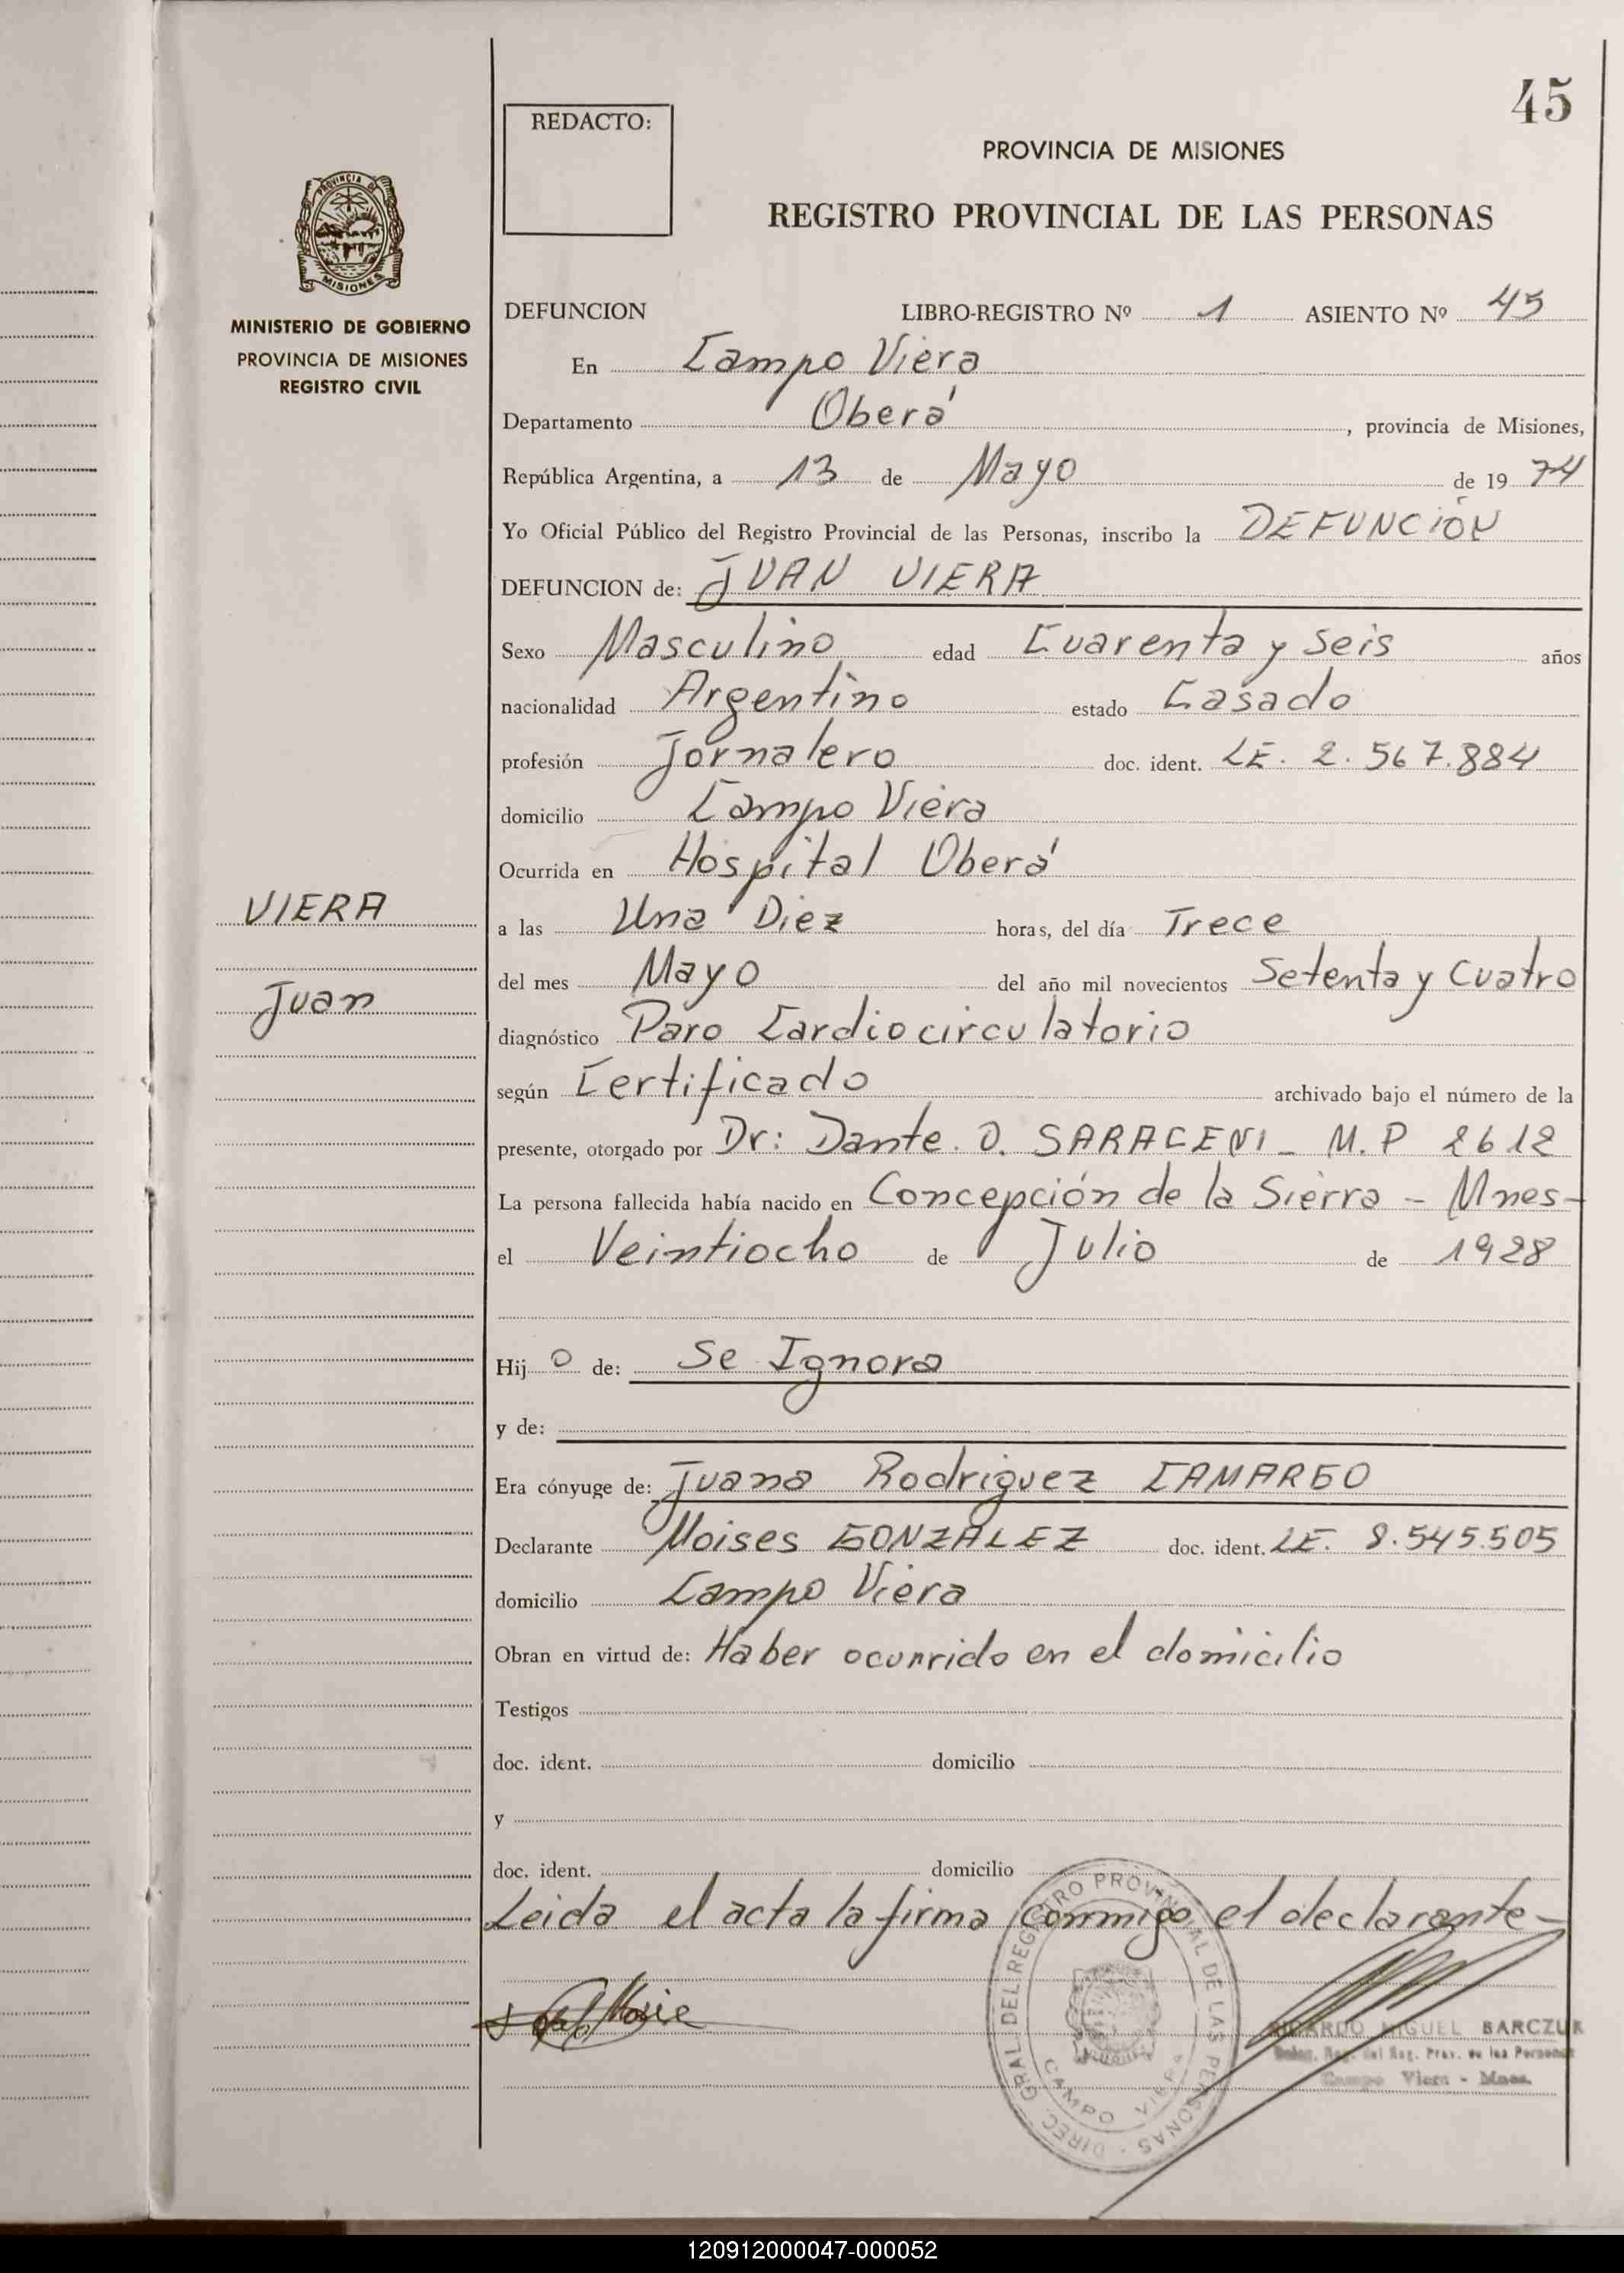 45
REDACTO:
PROVINCIA DE MISIONES
REGISTRO PROVINCIAL DE LAS PERSONAS
PROVINCIA DE
MISIONES
MINISTERIO DE GOBIERNO
PROVINCIA DE MISIONES
REGISTRO CIVIL
DEFUNCION LIBRO-REGISTRO Nº 1 ASIENTO Nº 45
En Campo Viera
Departamento Oberá, provincia de Misiones,
República Argentina, a 13 de Mayo de 1974
Yo Oficial Público del Registro Provincial de las Personas, inscribo la DEFUNCIÓN
DEFUNCION de: JUAN VIERA
Sexo Masculino edad Cuarenta y Seis años
nacionalidad Argentino estado Casado
profesión Jornalero doc. ident. LE. 2.567.884
domicilio Campo Viera
Ocurrida en Hospital Oberá
VIERA
Juan
a las Una Diez horas, del día Trece
del mes Mayo del año mil novecientos Setenta y Cuatro
diagnóstico Paro Cardiocirculatorio
según Certificado archivado bajo el número de la
presente, otorgado por Dr: Dante. O. SARACENI - M.P 2612
La persona fallecida había nacido en Concepción de la Sierra - Mnes-
el Veintiocho de Julio de 1928
Hijo de: Se Ignora
y de:
Era cónyuge de: Juana Rodriguez CAMARGO
Declarante Moises GONZALEZ doc. ident. LE. 8.545.505
domicilio Campo Viera
Obran en virtud de: Haber ocurrido en el domicilio
Testigos
doc. ident. domicilio
y
doc. ident. domicilio
Leida el acta la firma conmigo el declarante-
DIREC. GRAL DEL REGISTRO PROVINCIAL DE LAS PERSONAS
CAMPO VIERA
RICARDO MIGUEL BARCZUK
del Reg. Prov. de las Personas
Campo Viera - Mnes.
120912000047-000052